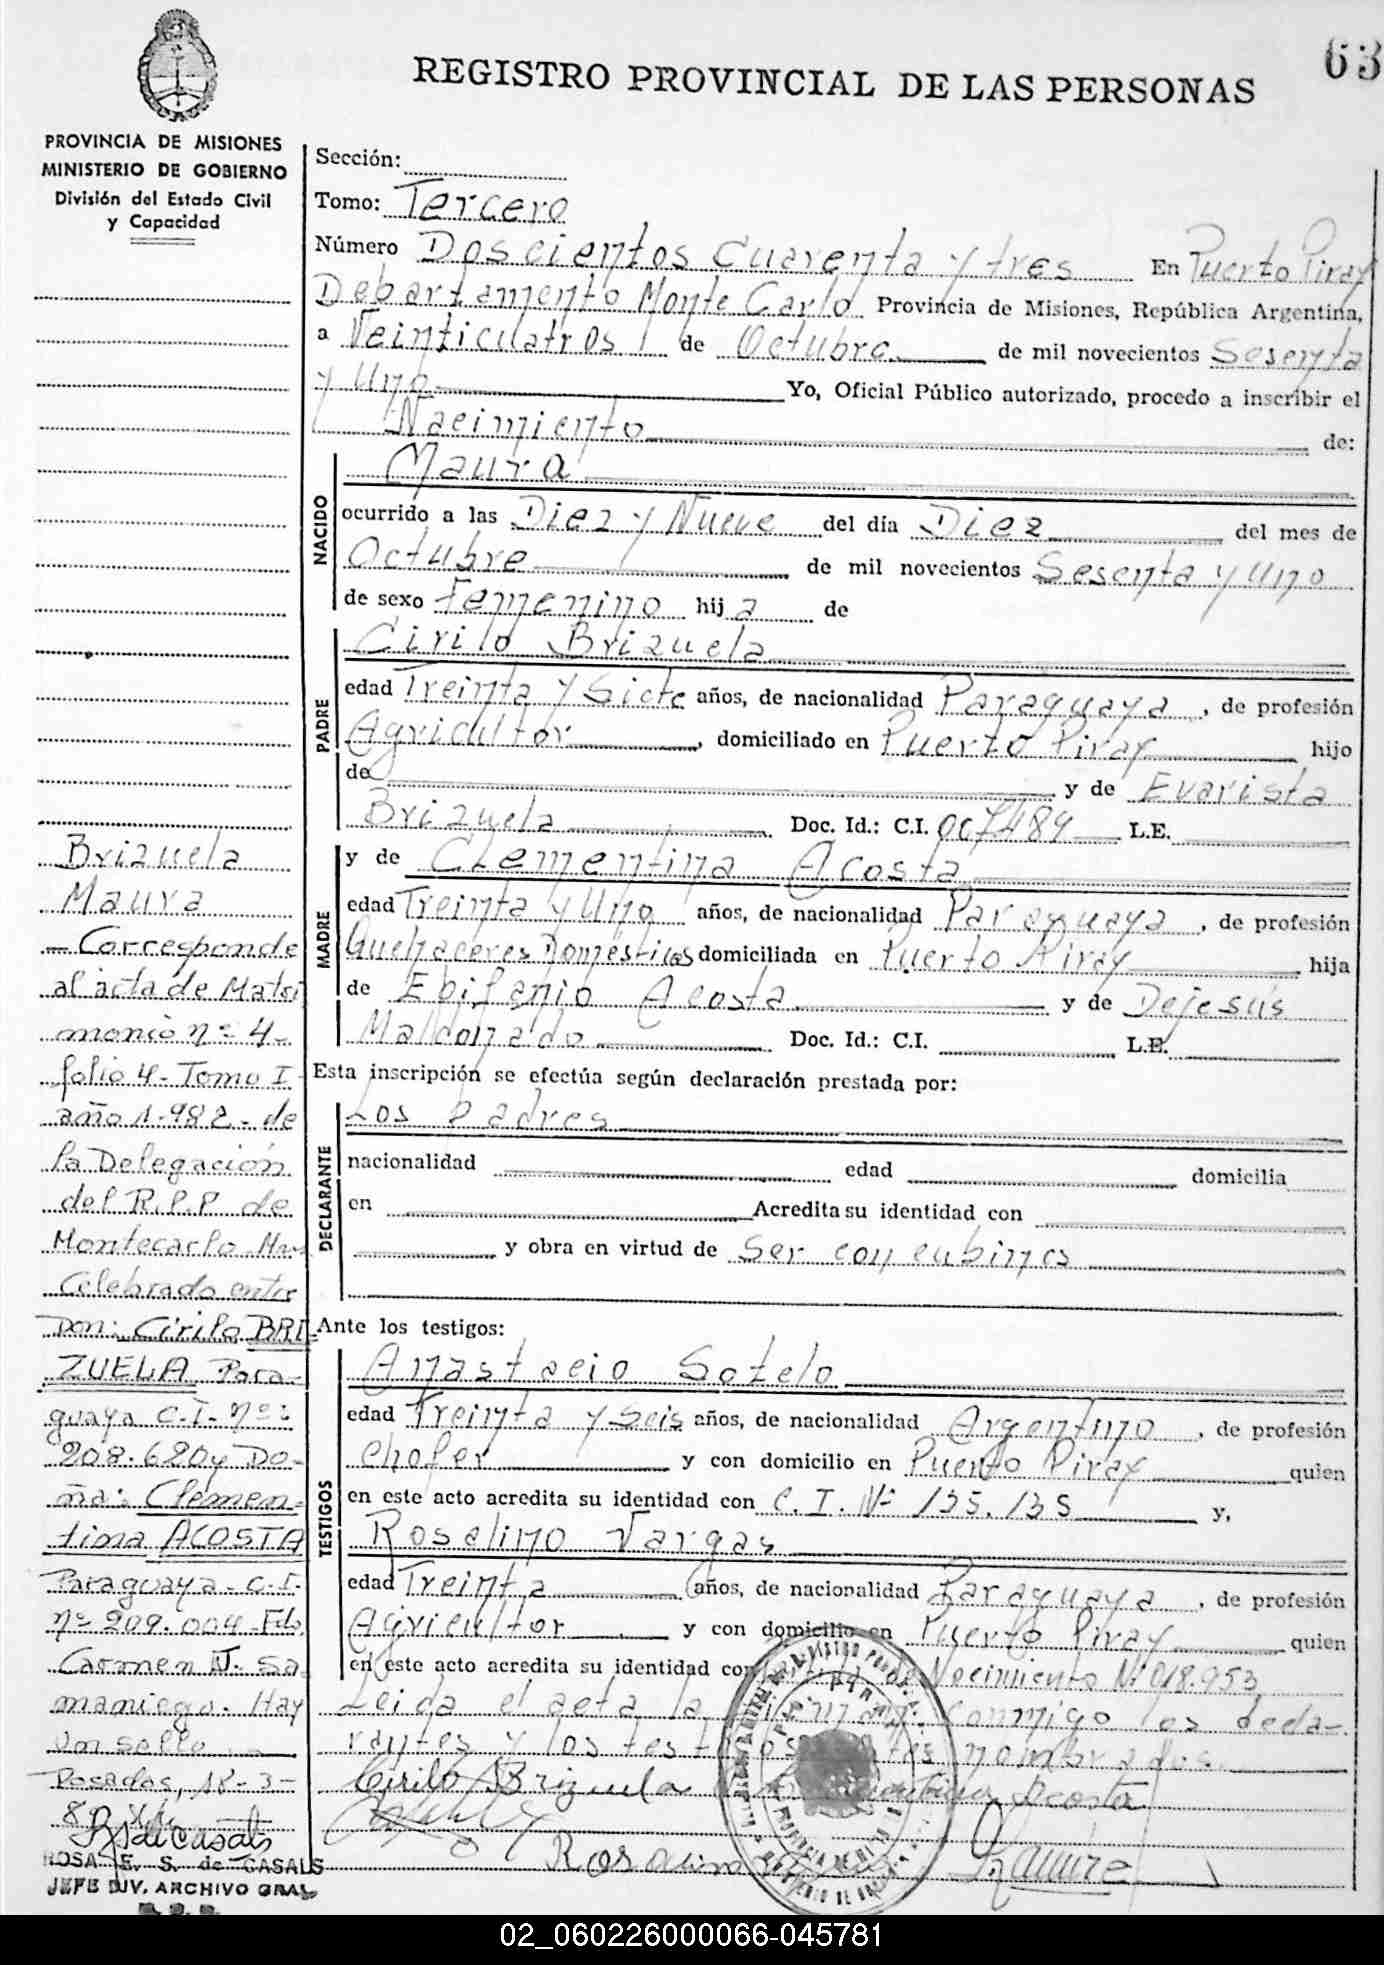 63
REGISTRO PROVINCIAL DE LAS PERSONAS
PROVINCIA DE MISIONES
MINISTERIO DE GOBIERNO
División del Estado Civil
y Capacidad
Sección:
Tomo: Tercero
Número Doscientos Cuarenta y tres En Puerto Piray
Departamento Monte Carlo Provincia de Misiones, República Argentina,
a Veinticuatros de Octubre de mil novecientos Sesenta
y Uno Yo, Oficial Público autorizado, procedo a inscribir el
Nacimiento de:
NACIDO
Maura
ocurrido a las Diez y Nueve del día Diez del mes de
Octubre de mil novecientos Sesenta y Uno
de sexo Femenino hij a de
PADRE
Cirilo Brizuela
edad Treinta y Siete años, de nacionalidad Paraguaya, de profesión
Agricultor, domiciliado en Puerto Piray hijo
de y de Evarista
Brizuela Doc. Id.: C.I. L.E.
MADRE
y de Clementina Acosta
edad Treinta y Uno años, de nacionalidad Paraguaya, de profesión
Quehaceres Domésticos domiciliada en Puerto Piray hija
de Epifanio Acosta y de Dejesús
Maldonado Doc. Id.: C.I. L.E.
Esta inscripción se efectúa según declaración prestada por:
DECLARANTE
Los Padres
nacionalidad edad domicilia
en Acredita su identidad con
y obra en virtud de Ser concubinos
Ante los testigos:
TESTIGOS
Anastacio Sotelo
edad Treinta y Seis años, de nacionalidad Argentino, de profesión
Chofer y con domicilio en Puerto Piray quien
en este acto acredita su identidad con C. I. Nº 135.135 y,
Roselino Vargas
edad Treinta años, de nacionalidad Paraguaya, de profesión
Agricultor y con domicilio en Puerto Piray quien
en este acto acredita su identidad con Nacimiento Nº 018.953
Leida el acta la firman conmigo los decla-
rantes y los testigos antes nombrados.
Cirilo Brizuela Clementina Acosta
Ramirez
Brizuela
Maura
- Corresponde
al acta de Matri
monio nº 4-
folio 4- Tomo I
año 1.982- de
la Delegación
del R.P.P. de
Montecarlo Mnes
Celebrado entre
Don: Cirilo BRI-
ZUELA Para-
guaya C.I. nº:
208.620 y Do-
ña: Clemen-
tina ACOSTA
Paraguaya- C.I.
nº 209.004- Fdo.
Carmen J. Sa-
maniego. Hay
un sello
Posadas, 18-3-
ROSA E. S. de CASALS
JEFE DIV. ARCHIVO GRAL
02_060226000066-045781